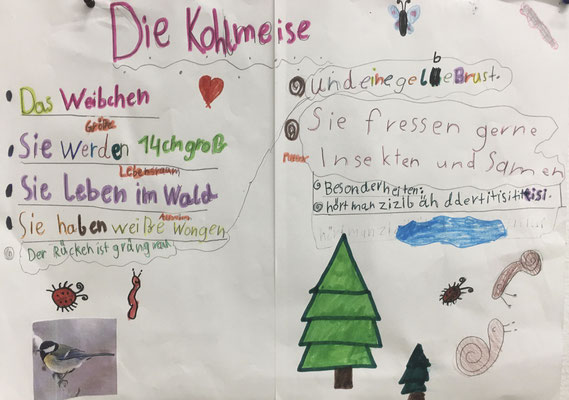 Die Kohlmeise
Das Weibchen
Größe
Sie werden 14chgroß
Lebensraum
Sie Leben im Wald
Aussehen
Sie haben weiße Wongen
Der Rücken ist gräng
und eine gelbe Brust.
Sie fressen gerne
Insekten und Samen
Besonderheiten:
hört man zizib äh ddertitisititisi.
hört man zizi